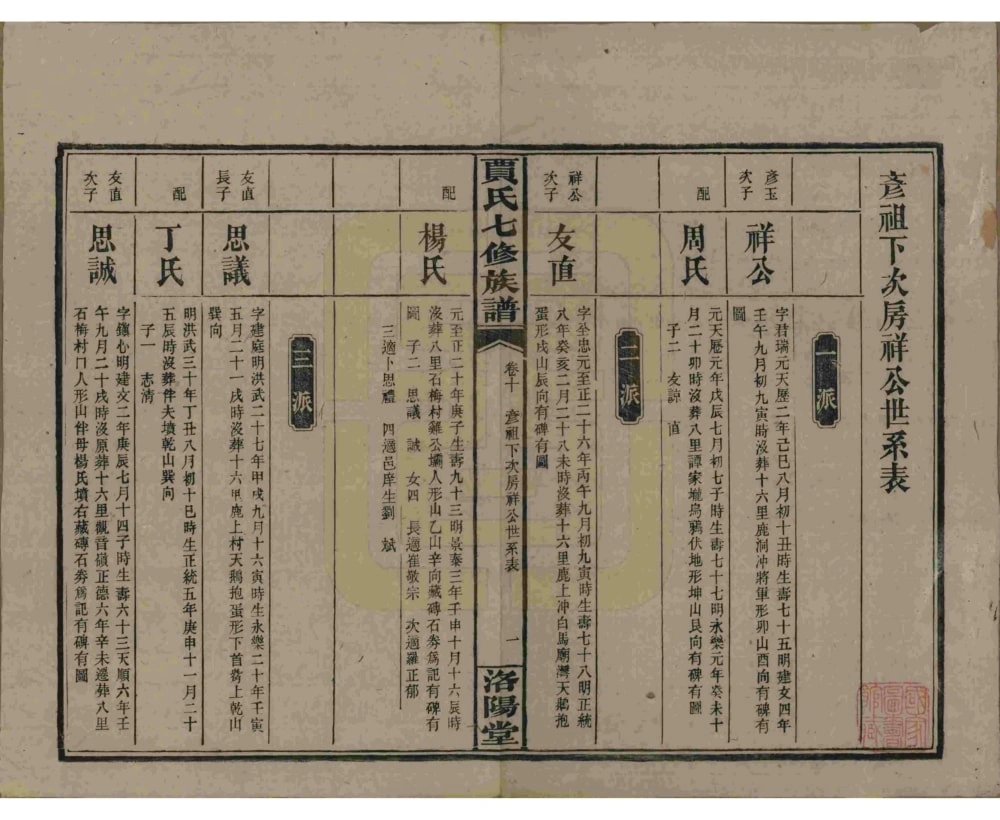 彥祖下次房祥公世系表
一派
彥玉
次子
祥公
字君瑞元天歷二年己巳八月初十丑時生壽七十五明建文四年
壬午九月初九寅時沒葬十六里鹿洞冲將軍形卯山酉向有碑有
圖
配
周氏
元天歷元年戊辰七月初七子時生壽七十七明永樂元年癸未十
月二十卯時沒葬八里譚家壠烏鴉伏地形坤山艮向有碑有圖
子二 友諒 直
二派
祥公
次子
友直
字全忠元至正二十六年丙午九月初九寅時生壽七十八明正統
八年癸亥二月二十八未時沒葬十六里鹿上冲白馬廟灣天鵝抱
蛋形戌山辰向有碑有圖
賈氏七修族譜
卷十 彥祖下次房祥公世系表
一
洛陽堂
配
楊氏
元至正二十年庚子生壽九十三明景泰三年壬申十月十六辰時
沒葬八里石梅村雞公壩人形山乙山辛向藏磚石劵為記有碑有
圖 子二 思議 誠 女四 長適崔敬宗 次適羅正郁
三適卜思禮 四適邑庠生劉斌
三派
友直
長子
思議
字建庭明洪武二十七年甲戌九月十六寅時生永樂二十年壬寅
五月二十一戌時沒葬十六里鹿上村天鵝抱蛋形下首嘴上乾山
巽向
配
丁氏
明洪武三十年丁丑八月初十巳時生正統五年庚申十一月二十
五辰時沒葬伴夫墳乾山巽向
子一 志清
友直
次子
思誠
字鎮心明建文二年庚辰七月十四子時生壽六十三天順六年壬
午九月二十戌時沒原葬十六里觀音嶺正德六年辛未遷葬八里
石梅村門人形山伴母楊氏墳右藏磚石劵為記有碑有圖